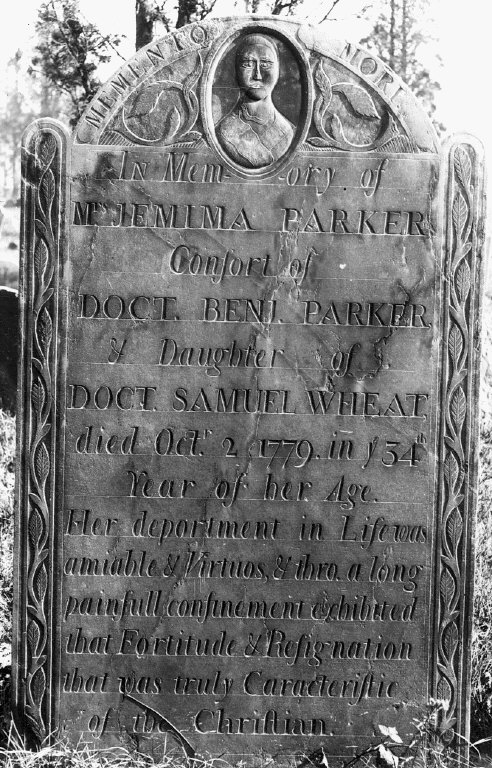 MEMENTO MORI
In Memory of
Mrs JEMIMA PARKER
Conſort of
DOCT. BENJ. PARKER
& Daughter of
DOCT. SAMUEL WHEAT,
died Octr. 2 1779. in ye 34th
Year of her Age.
Her deportment in Life was
amiable & Virtuos, & thro. a long
painfull confinement exhibited
that Fortitude & Reſignation
that was truly Caracteriſtic
of the Chriſtian.